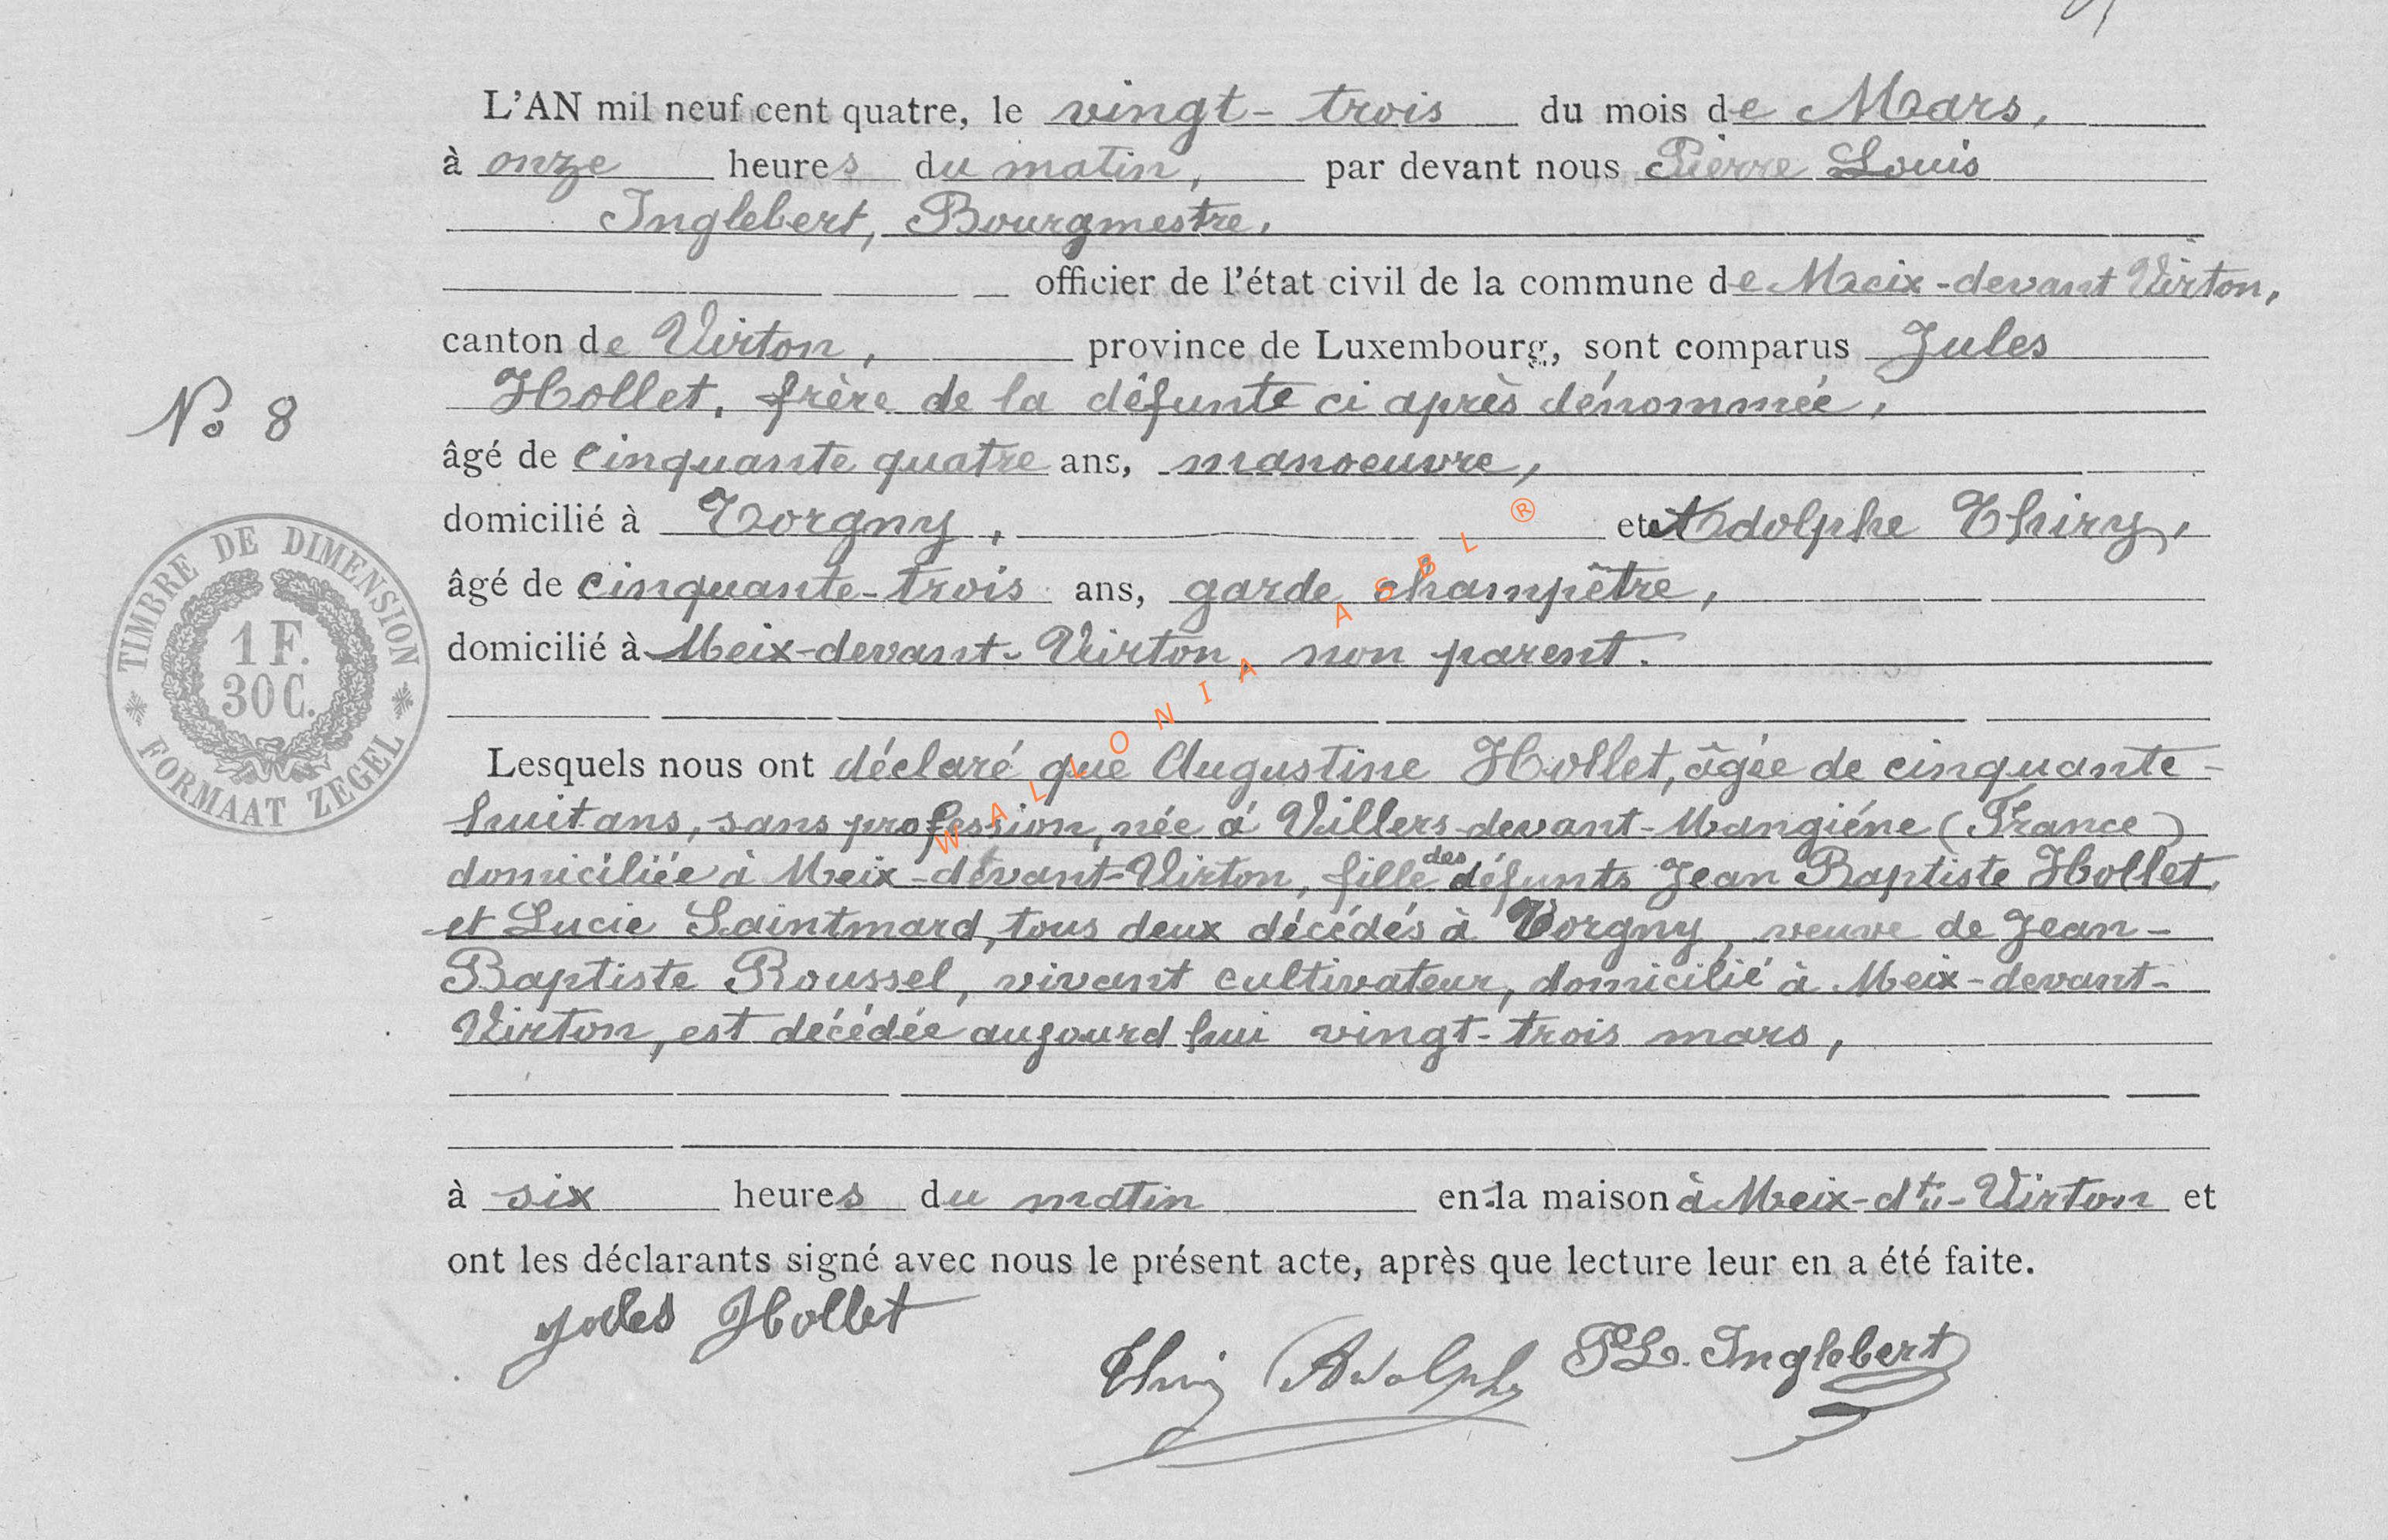 L'AN mil neuf cent quatre, le vingt-trois du mois de Mars,
à onze heures du matin, par devant nous Pierre Louis
Inglebert, Bourgmestre,
officier de l'état civil de la commune de Meix-devant Virton,
canton de Virton, province de Luxembourg, sont comparus Jules
Hollet, frère de la défunte ci après dénommée,
No 8
âgé de cinquante quatre ans, manoeuvre,
domicilié à Torgny, et Adolphe Thiry,
âgé de cinquante-trois ans, garde champêtre,
domicilié à Meix-devant-Virton, non parent.
TIMBRE DE DIMENSION
1 F.
30 C.
FORMAAT ZEGEL
Lesquels nous ont déclaré que Augustine Hollet, âgée de cinquante-
huit ans, sans profession, née à Villers-devant-Mangiéne (France)
domiciliée à Meix-devant-Virton, fille des défunts Jean Baptiste Hollet,
et Lucie Saintmard, tous deux décédés à Torgny, veuve de Jean-
Baptiste Roussel, vivant cultivateur, domicilié à Meix-devant-
Virton, est décédée aujourd hui vingt-trois mars,
à six heures du matin en la maison à Meix-dt-Virton et
ont les déclarants signé avec nous le présent acte, après que lecture leur en a été faite.
Jules Hollet
Thiry Adolphe P L. Inglebert
WALLONIA ASBL ®